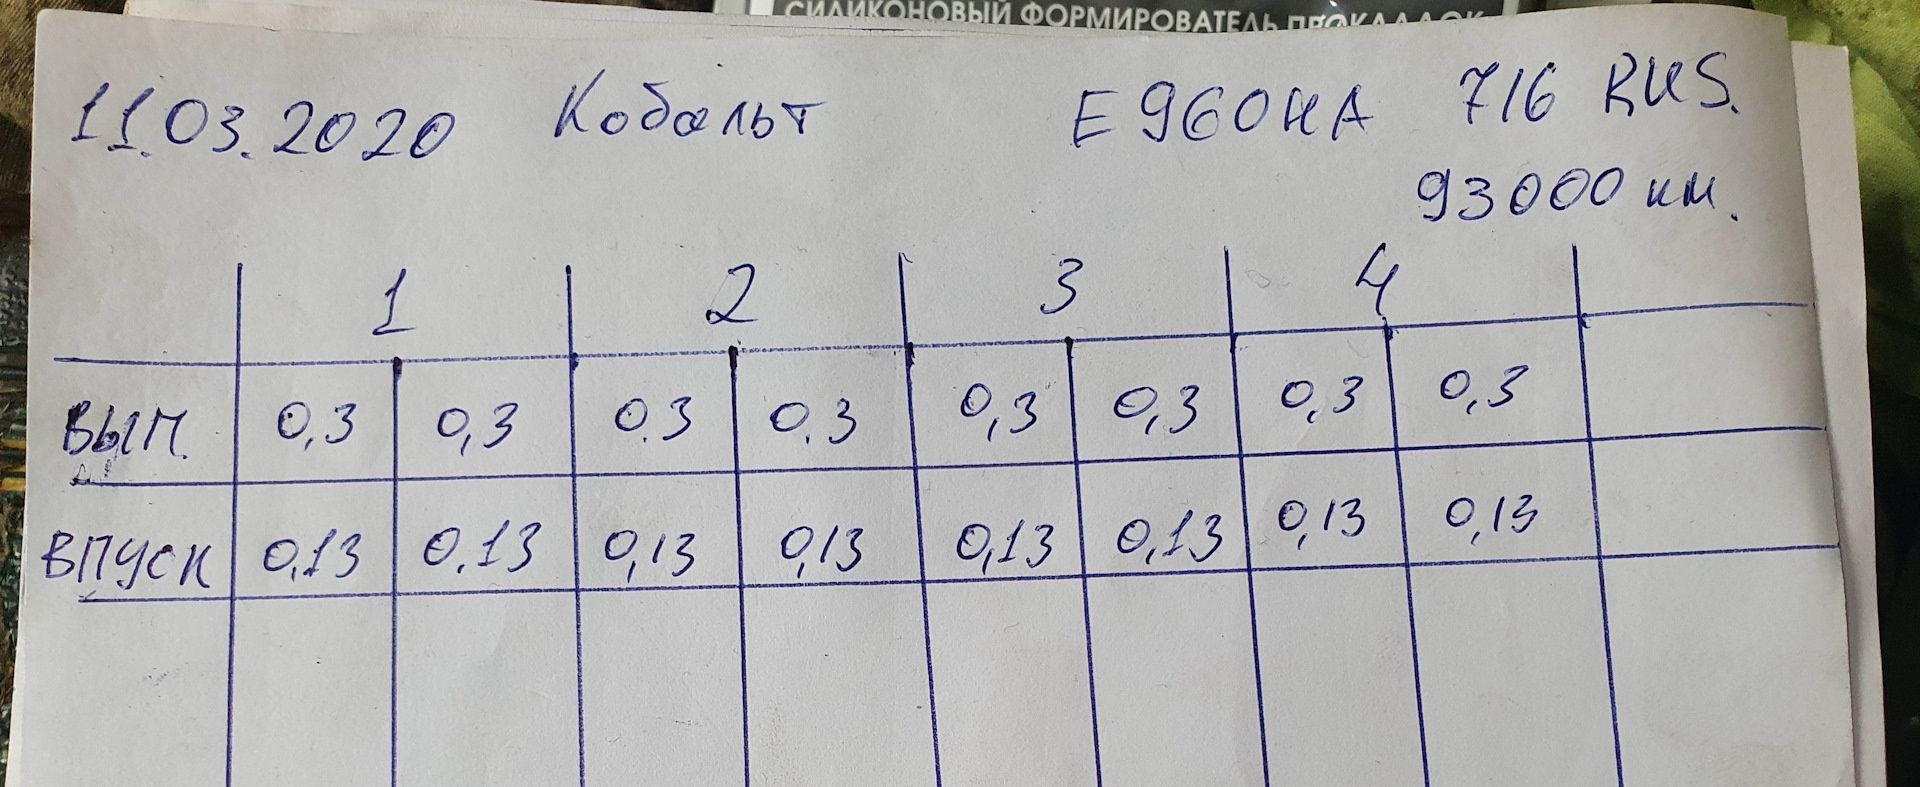 СИЛИКОНОВЫЙ ФОРМИРОВАТЕЛЬ ПРОКЛАДОК
11.03.2020 Кобальт Е960НА 716 RUS.
93000 км.
1 2 3 4
ВЫП. 0,3 0,3 0.3 0.3 0,3 0,3 0,3 0,3
ВПУСК 0,13 0.13 0,13 0,13 0,13 0,13 0,13 0,13